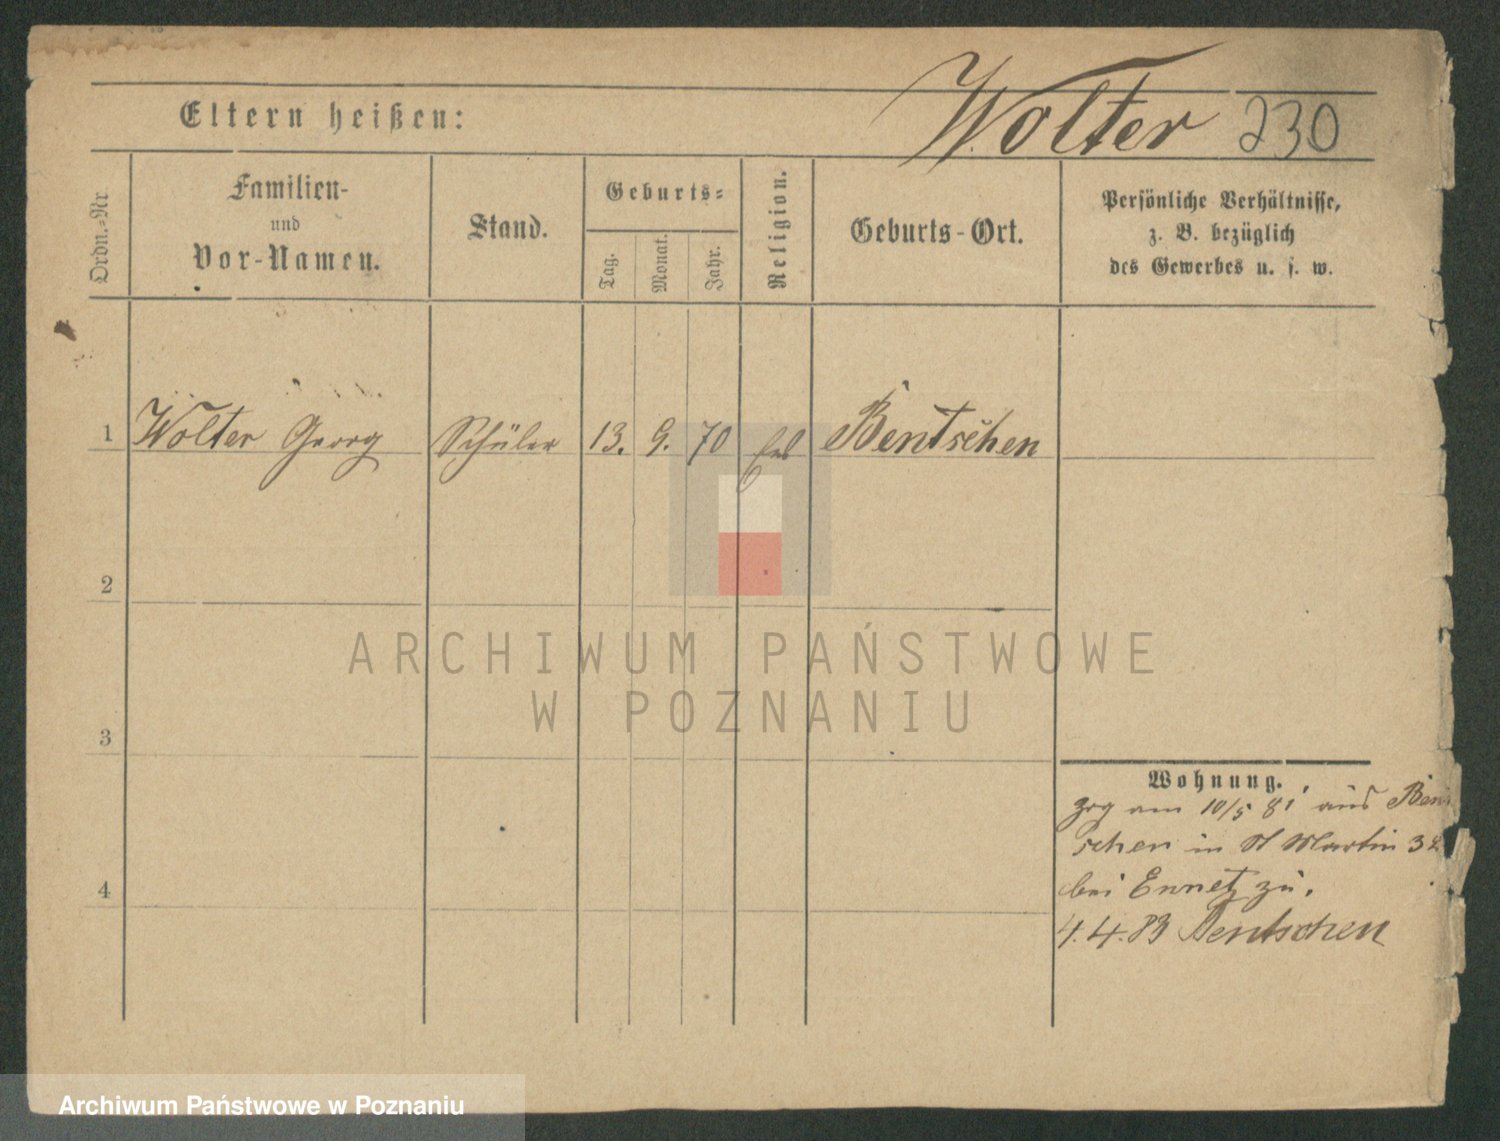 Wolter 230
Eltern heißen:
Ordn.-Nr
Familien-
und
Vor-Namen.
Stand.
Geburts-
Tag.
Monat.
Jahr.
Religion.
Geburts-Ort.
Persönliche Verhältnisse,
z. B. bezüglich
des Gewerbes u. s. w.
1 Wolter Georg Schüler 13. 9. 70 Bentschen
2
3
4
Wohnung.
zog am 10/5 81 aus Bent
schen in St Martin 32
bei Ennetz zu.
4.4.83 Bentschen
ARCHIWUM PAŃSTWOWE
W POZNANIU
Archiwum Państwowe w Poznaniu